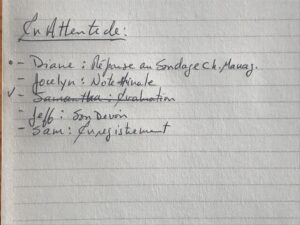 En Attente de:
- Diane : Réponse au Sondage Ch. Manag.
- Jocelyn : Note finale
- Samantha : Evaluation
- Jeff : Son Devoir
- Sam : Enregistrement